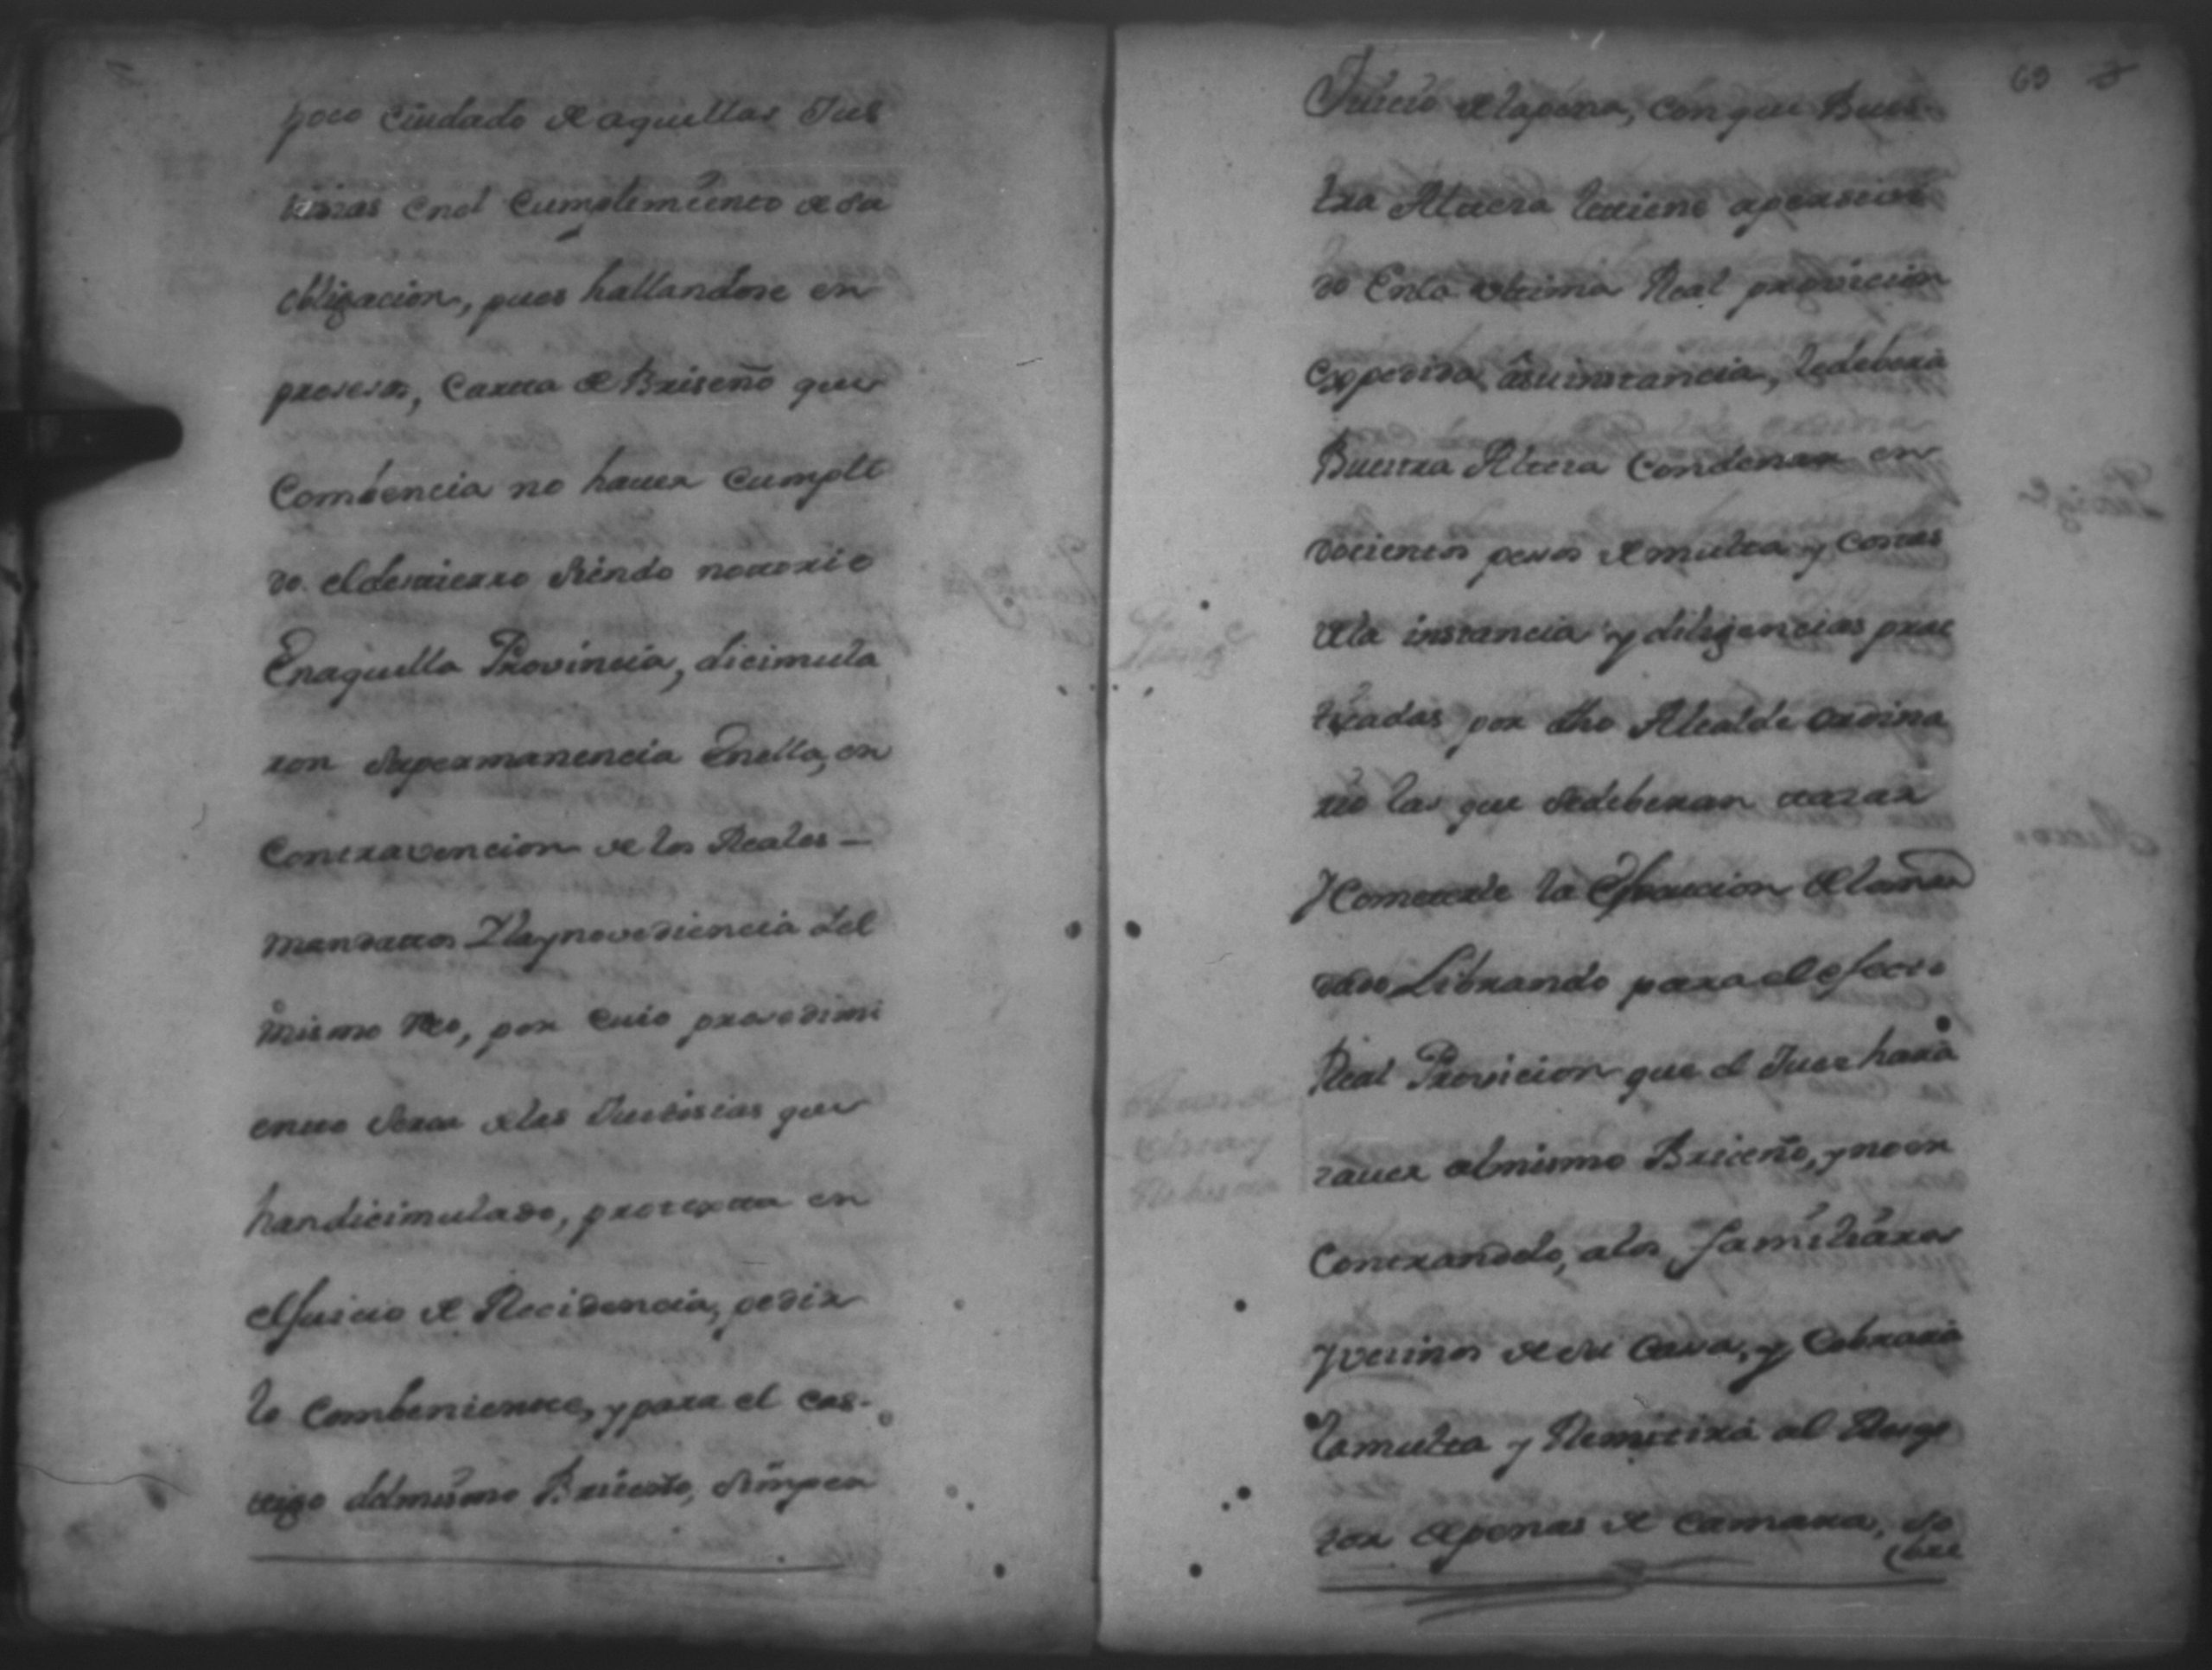 poco Cuidado de aquellas Jus
ticias en el Cumplimiento de su
obligacion, pues hallandose en
Carcel de Briseño que
Combencia no hauer Cumpli
do el destierro siendo notorio
Enaquella Provincia, dicimula
ron supermanencia Enella, en
Contravencion de los Reales —
mandatos Ylaynovediencia del
mismo Reo, por cuio procedimi
ento seran las Justicias que
handicimulado, protexta en
elJuicio de Recidencia, pedir
lo Combeniente, y para el cas-
tigo delmismo Briceño, sinper
69
Juicio delapena, conque Bues-
tra Alteza letiene apersevi
do Enla ultima Real provicion
Expedida, âsuinstancia, ledeberà
Buestra Alteza Condenar en
docientos pesos demulta y costas
dela instancia y diligencias prac
ticadas por dho Alcalde ordina
rio las que sedeberan tazar
YCometerle la Execucion delaman
dado Librando para el efecto
Real Provicion que el Juez harà
saver almismo Briceño, y noen
Contrandolo, alos familiares
Yvecinos desu Casa, y Cobrarà
lamulta y Remitirà al Rexep
tor depenas de Camara, so
bre